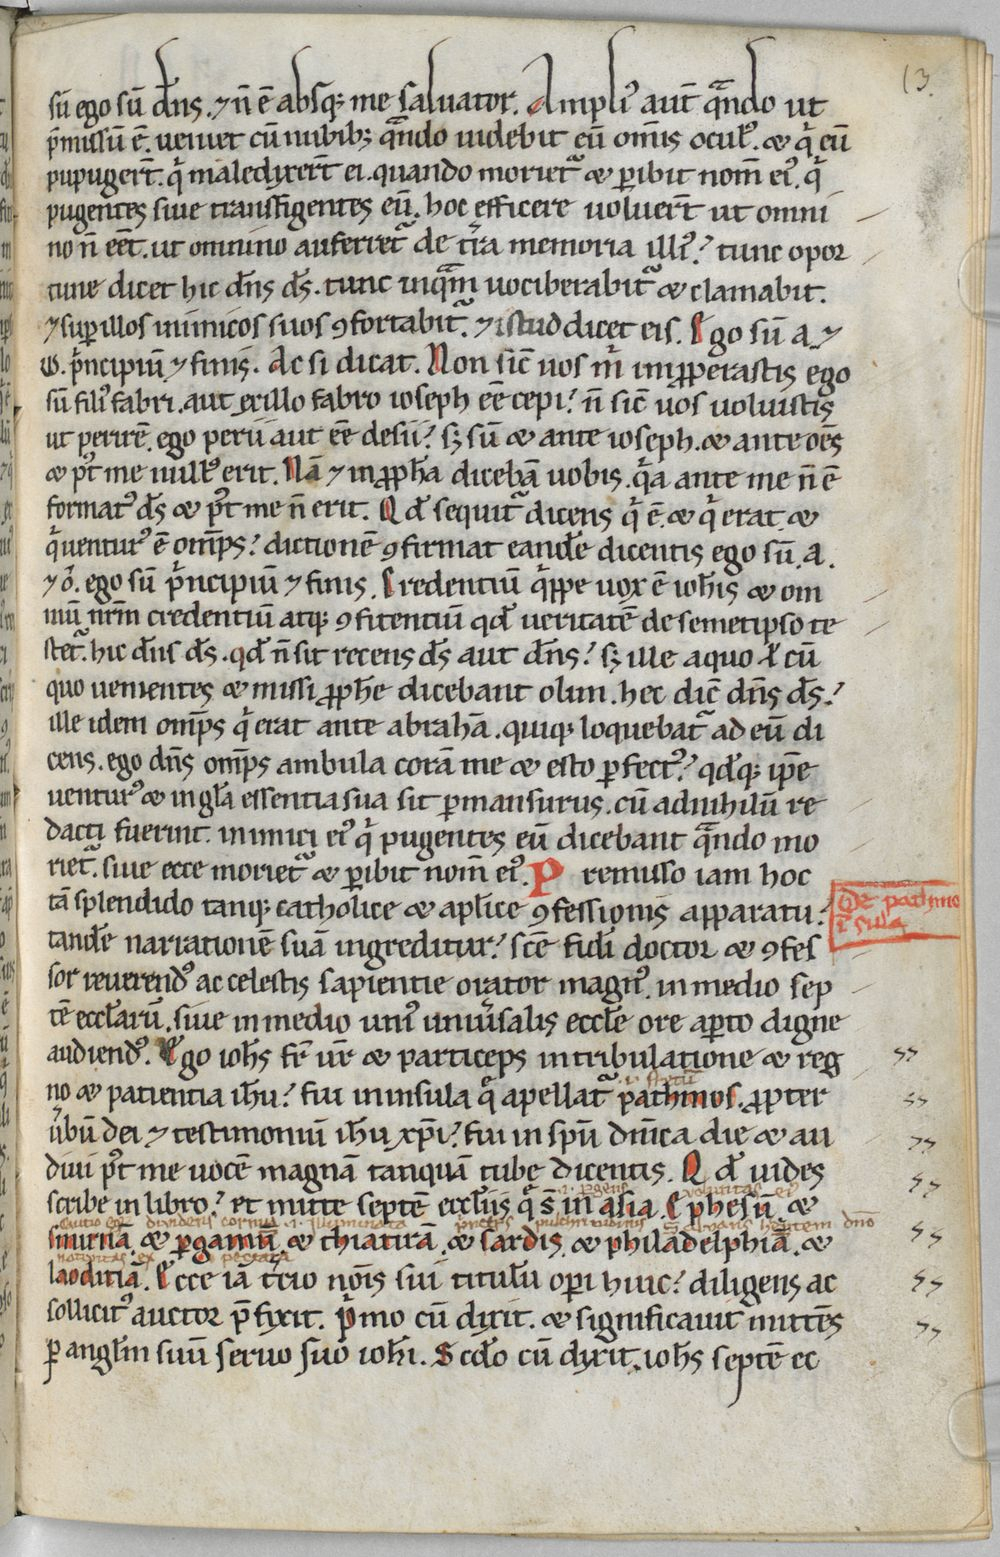 13.
sū ego sū dn̄s. ⁊ n̄ ē absq; me saluator. Ampli᾽ aut̄ qn̄do ut
p̄missū ē. ueniet cū nubib; qn̄do uidebit eū om̄is ocul᾽. & q̇ eū
pupuger̄t. q̇ maledixer̄t ei. quando moriet᷑ & ꝑibit nom̄ ei᾽. q̇
pugentes siue transfigentes eū. hoc efficere uoluer̄t ut omni
no n̄ eēt. ut omnino auferret᷑ de t̄ra memoria illi᾽? tunc opor
tune dicet hic dn̄s ds̄. tunc inquā uociberabit᷑ & clamabit.
⁊ suꝑ illos inimicos suos ꝯfortabit᷑. ⁊ istud dicet eis. Ego sū a ⁊
ω. ṗncipiū ⁊ finis. Ac si dicat. Non sic̄ uos ṁ inꝓperastis ego
sū fili᾽ fabri. aut ex illo fabro ioseph eē cepi? n̄ sic̄ uos uoluistis
ut perirē. ego perii aut eē desii? sꝫ sū & ante ioseph. & ante oēs
& p᾽t me null᾽ erit. Nā ⁊ in ꝓph̄a dicebā uobis. q̇a ante me n̄ ē
format᾽ ds̄ & p᾽t me n̄ erit. Qd̄ sequit᷑ dicens q̇ ē. & q̇ erat. &
q̇ uentur᾽ ē omp̄s? dictionē ꝯfirmat eandē dicentis ego sū. a.
⁊ ō. ego sū ṗncipiū ⁊ finis. Credentiū q̇ppe uox ē ioh̄is & om
niū nr̄m credentiū atq; ꝯfitentiū qd̄ ueritatē de semetipso te
stet᷑. hic dn̄s ds̄. qd̄ n̄ sit recens ds̄ aut dn̄s? sꝫ ille a quo ł cū
quo uenientes & missi ꝓph̄e dicebant olim. hec dic̄ dn̄s ds̄?
ille idem omp̄s q̇ erat ante abrahā. quiq; loquebat᷑ ad eū di
cens. ego dn̄s omp̄s ambula corā me & esto ꝑfect᾽? qd̄q; ip̄e
uentur᾽ & in gl̄a essentia sua sit ꝑmansurus. cū ad nihilū re
dacti fuerint. inimici ei᾽ q̇ pugentes eū dicebant qn̄do mo
riet᷑. siue ecce moriet᷑ & ꝑibit nom̄ ei᾽. Premisso iam hoc
tā splendido tanq; catholice & apl̄ice ꝯfessionis apparatu?
De pathmo
insula
tandē narrationē suā ingreditur? scē fidi doctor & ꝯfes
sor reuerend᾽ ac celestis sapientie orator magn᾽. in medio sep
tē eccl̄arū. siue in medio uni᾽ uniu̇salis eccl̄e ore aꝑto digne
audiend᾽. Ego ioh̄s fr̄ ur̄ & particeps in tribulatione & reg
no & patientia ih̄u? fui in insula q̄ apellat᷑ pathmos. ꝓpter
u̇bū dei ⁊ testimoniū ih̄u xp̄i? fui in sp̄u dn̄ica die & au
diui p᾽t me uocē magnā tanquā tubę dicentis. Qd̄ uides
scribe in libro? et mitte septē eccl̄iis q̄ s̄ in asia. Ephesū. &
smirnā. & ꝑgamū. & thiatirā. & sardis. & philadelphiā. &
laoditiā. Ecce iā t̄cio noīs sui titulū oꝑi huic? diligens ac
sollicit᾽ auctor p̄fixit. Ṗmo cū dixit. & significauit mittēs
ꝑ angl̄m suū seruo suo ioh̄i. Scd̄o cū dixit. ioh̄s septē ec